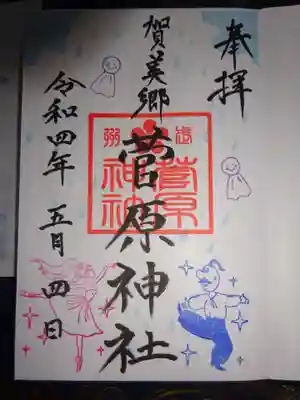 奉拝
賀美郷
菅原神社
令和四年 五月 四日